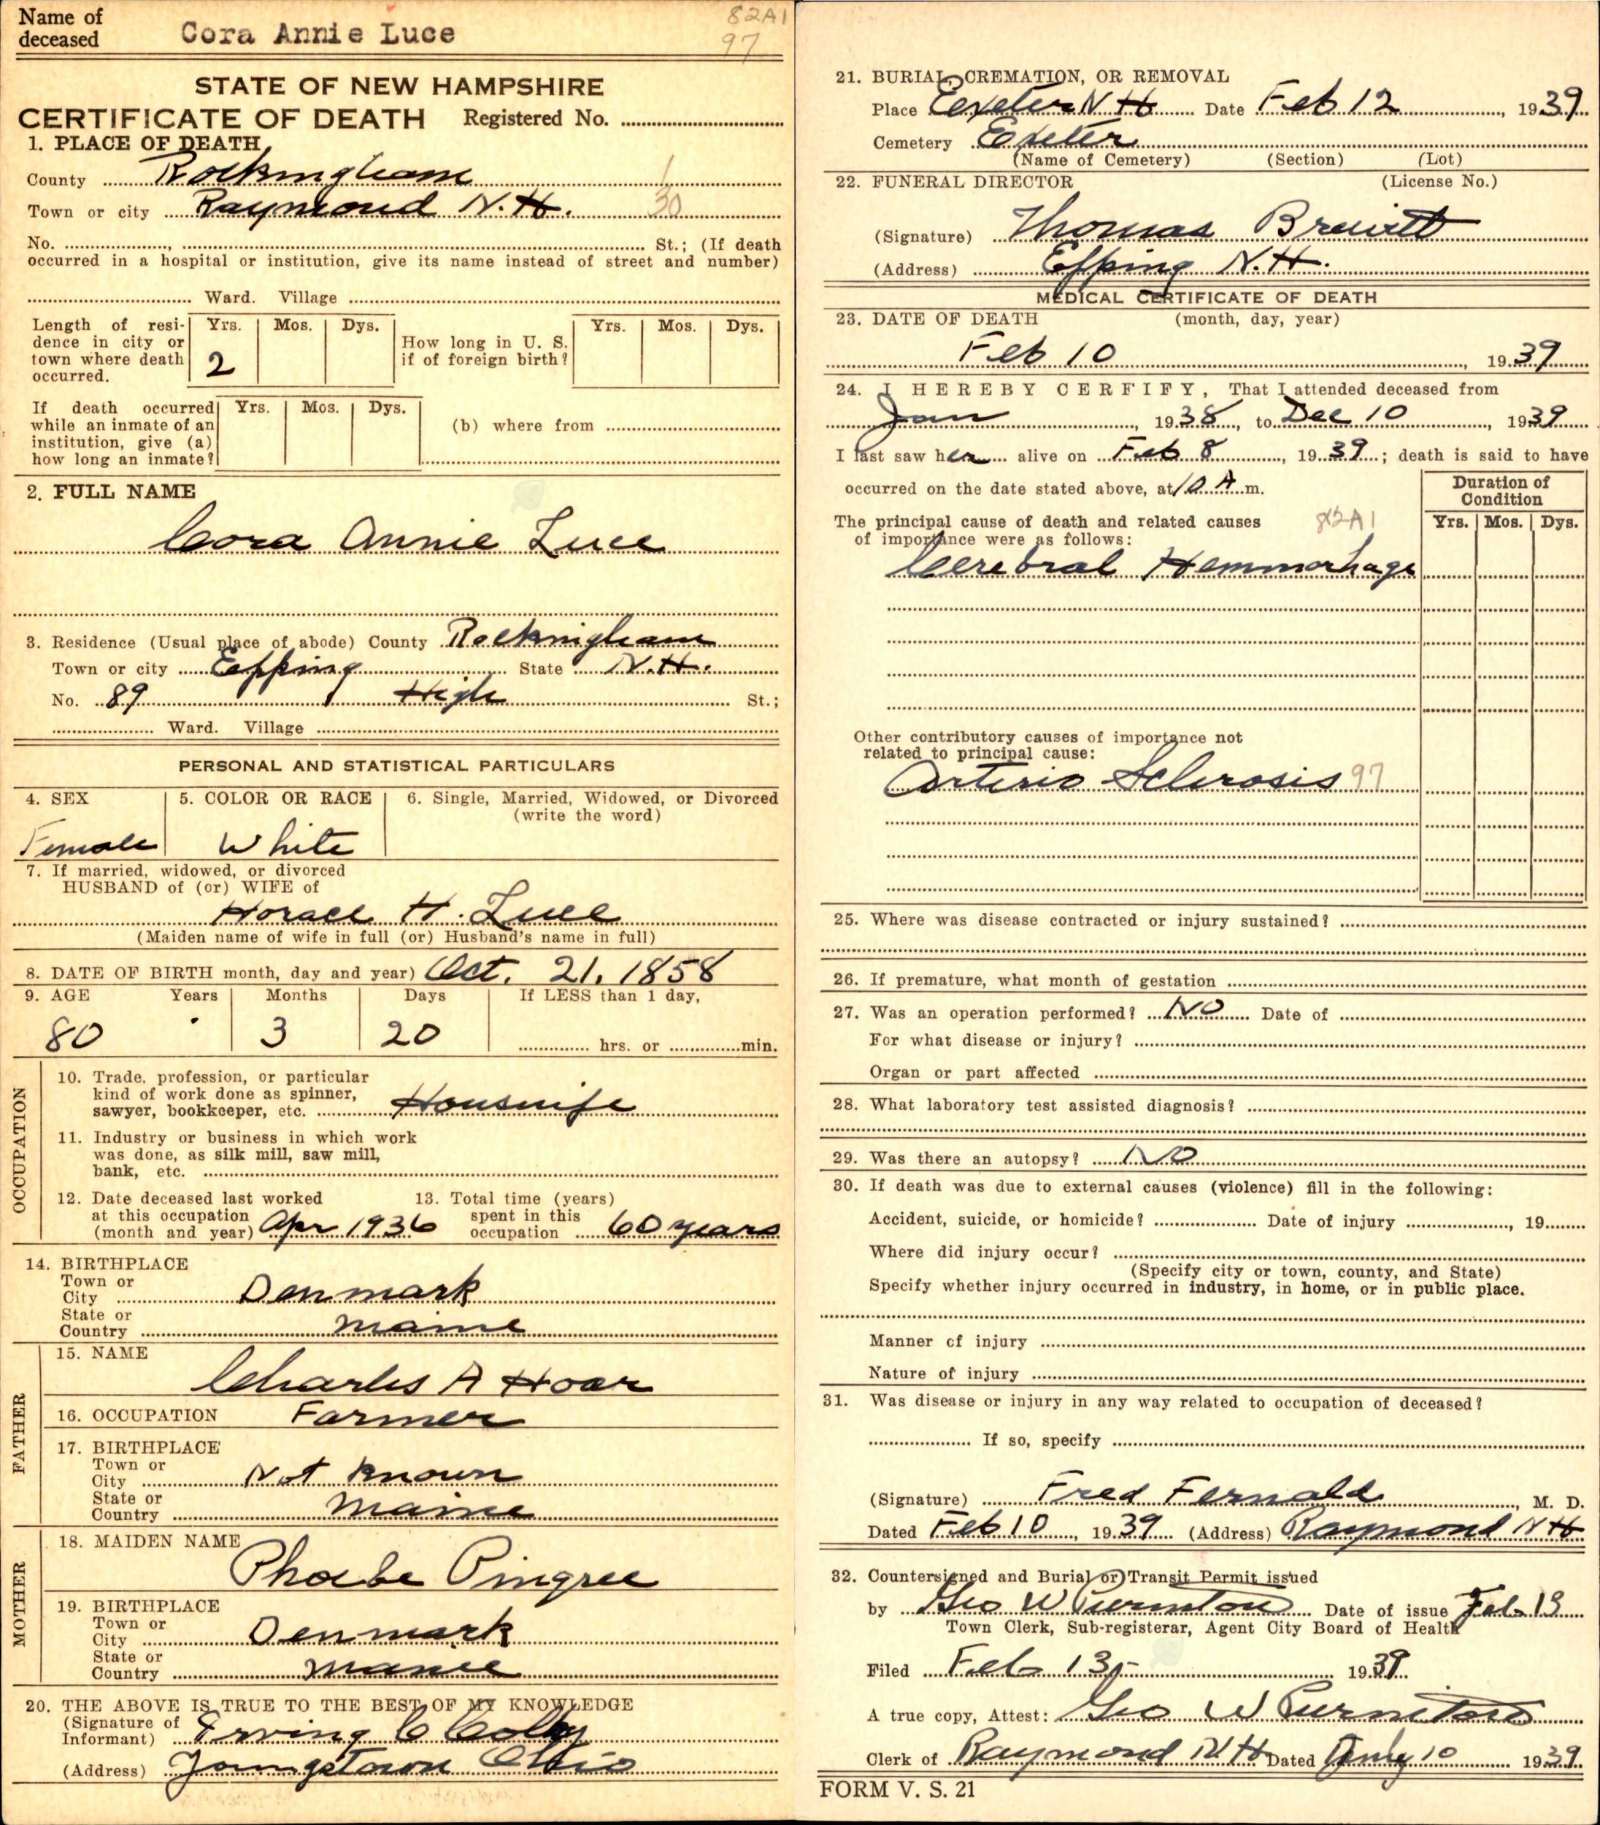 Name of deceased Cora Annie Luce
82A1
97
STATE OF NEW HAMPSHIRE
CERTIFICATE OF DEATH Registered No.
1. PLACE OF DEATH
County Rockingham 1
Town or city Raymond N.H. 30
No. , St.; (If death
occurred in a hospital or institution, give its name instead of street and number)
Ward. Village
Length of resi-dence in city or town where death occurred. Yrs. 2 Mos. Dys. How long in U. S. if of foreign birth? Yrs. Mos. Dys.
If death occurred while an inmate of an institution, give (a) how long an inmate? Yrs. Mos. Dys. (b) where from
2. FULL NAME
Cora Annie Luce
3. Residence (Usual place of abode) County Rockingham
Town or city Epping State N.H.
No. 89 High St.;
Ward. Village
PERSONAL AND STATISTICAL PARTICULARS
4. SEX 5. COLOR OR RACE 6. Single, Married, Widowed, or Divorced
(write the word)
Female White
7. If married, widowed, or divorced
HUSBAND of (or) WIFE of
Horace H. Luce
(Maiden name of wife in full (or) Husband's name in full)
8. DATE OF BIRTH month, day and year) Oct. 21, 1858
9. AGE Years Months Days If LESS than 1 day,
80 3 20 hrs. or min.
OCCUPATION
10. Trade, profession, or particular
kind of work done as spinner,
sawyer, bookkeeper, etc. Houswife
11. Industry or business in which work
was done, as silk mill, saw mill,
bank, etc.
12. Date deceased last worked
at this occupation
(month and year) Apr 1936
13. Total time (years)
spent in this
occupation 60 years
14. BIRTHPLACE
Town or
City Denmark
State or
Country Maine
FATHER
15. NAME
Charles A Hoar
16. OCCUPATION Farmer
17. BIRTHPLACE
Town or
City Not Known
State or
Country Maine
MOTHER
18. MAIDEN NAME
Phoebe Pingree
19. BIRTHPLACE
Town or
City Denmark
State or
Country Maine
20. THE ABOVE IS TRUE TO THE BEST OF MY KNOWLEDGE
(Signature of
Informant) Erving C Colby
(Address) Youngstown Ohio
21. BURIAL, CREMATION, OR REMOVAL
Place Exeter N H Date Feb 12, 1939
Cemetery Exeter
(Name of Cemetery) (Section) (Lot)
22. FUNERAL DIRECTOR (License No.)
(Signature) Thomas Brewitt
(Address) Epping N.H.
MEDICAL CERTIFICATE OF DEATH
23. DATE OF DEATH (month, day, year)
Feb 10, 1939
24. I HEREBY CERFIFY, That I attended deceased from
Jan, 1938, to Dec 10, 1939
I last saw her alive on Feb 8, 1939; death is said to have
occurred on the date stated above, at 10 A m.
Duration of Condition
Yrs. Mos. Dys.
The principal cause of death and related causes
of importance were as follows: 82A1
Cerebral Hemmorhage
Other contributory causes of importance not
related to principal cause:
Arterio Sclerosis 97
25. Where was disease contracted or injury sustained?
26. If premature, what month of gestation
27. Was an operation performed? No Date of
For what disease or injury?
Organ or part affected
28. What laboratory test assisted diagnosis?
29. Was there an autopsy? No
30. If death was due to external causes (violence) fill in the following:
Accident, suicide, or homicide? Date of injury , 19
Where did injury occur?
(Specify city or town, county, and State)
Specify whether injury occurred in industry, in home, or in public place.
Manner of injury
Nature of injury
31. Was disease or injury in any way related to occupation of deceased?
If so, specify
(Signature) Fred Fernald, M. D.
Dated Feb 10, 1939 (Address) Raymond N H
32. Countersigned and Burial or Transit Permit issued
by Geo W Purinton Date of issue Feb 13
Town Clerk, Sub-registerar, Agent City Board of Health
Filed Feb 13 1939
A true copy, Attest: Geo W Purinton
Clerk of Raymond N H Dated July 10 1939
FORM V. S. 21